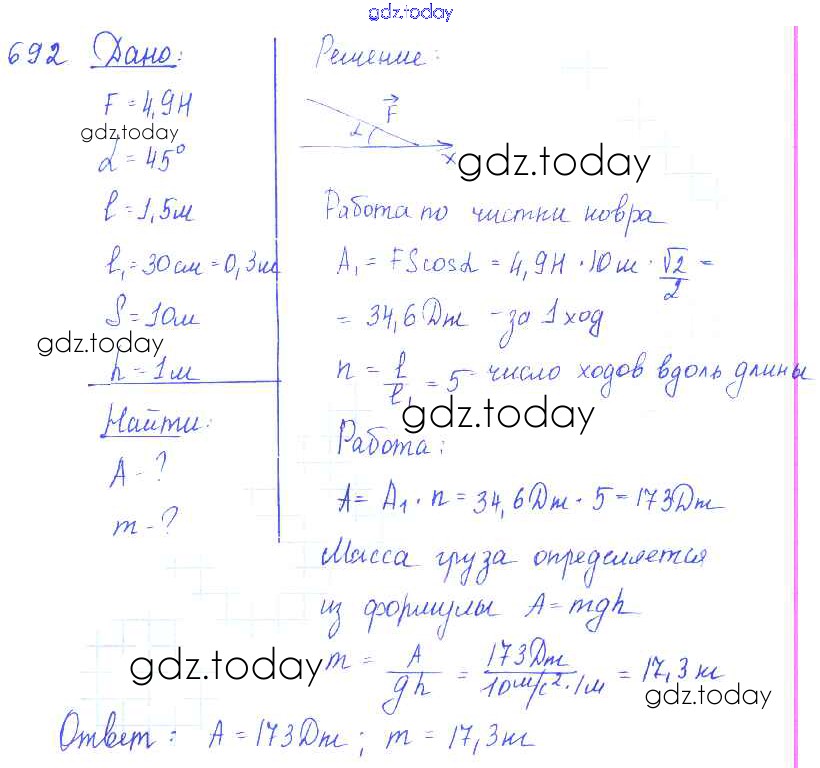 gdz.today
692 Дано:
F = 4,9Н
gdz.today
α = 45°
l = 1,5м
l₁ = 30см = 0,3м
S = 10м
gdz.today
h = 1м
Найти:
A - ?
m - ?
Решение:
F
α
x
gdz.today
Работа по чистки ковра
A₁ = FScosα = 4,9Н · 10м · √2/2 =
= 34,6Дж - за 1 ход
n = l/l₁ = 5 - число ходов вдоль длины
gdz.today
Работа:
A = A₁ · n = 34,6Дж · 5 = 173Дж
Масса груза определяется
из формулы A = mgh
gdz.today
m = A/gh = 173Дж/10м/с² · 1м = 17,3кг
gdz.today
Ответ: A = 173Дж; m = 17,3кг